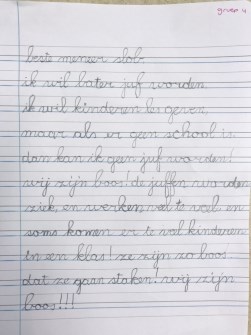 groep 4
beste meneer slob,
ik wil later juf worden.
ik wil kinderen les geven,
maar als er geen school is
dan kan ik geen juf worden!
wij zijn boos! de juffen worden
ziek, en werken veel te veel en
soms komen er te veel kinderen
in een klas! ze zijn zo boos
dat ze gaan staken! wij zijn
boos!!!